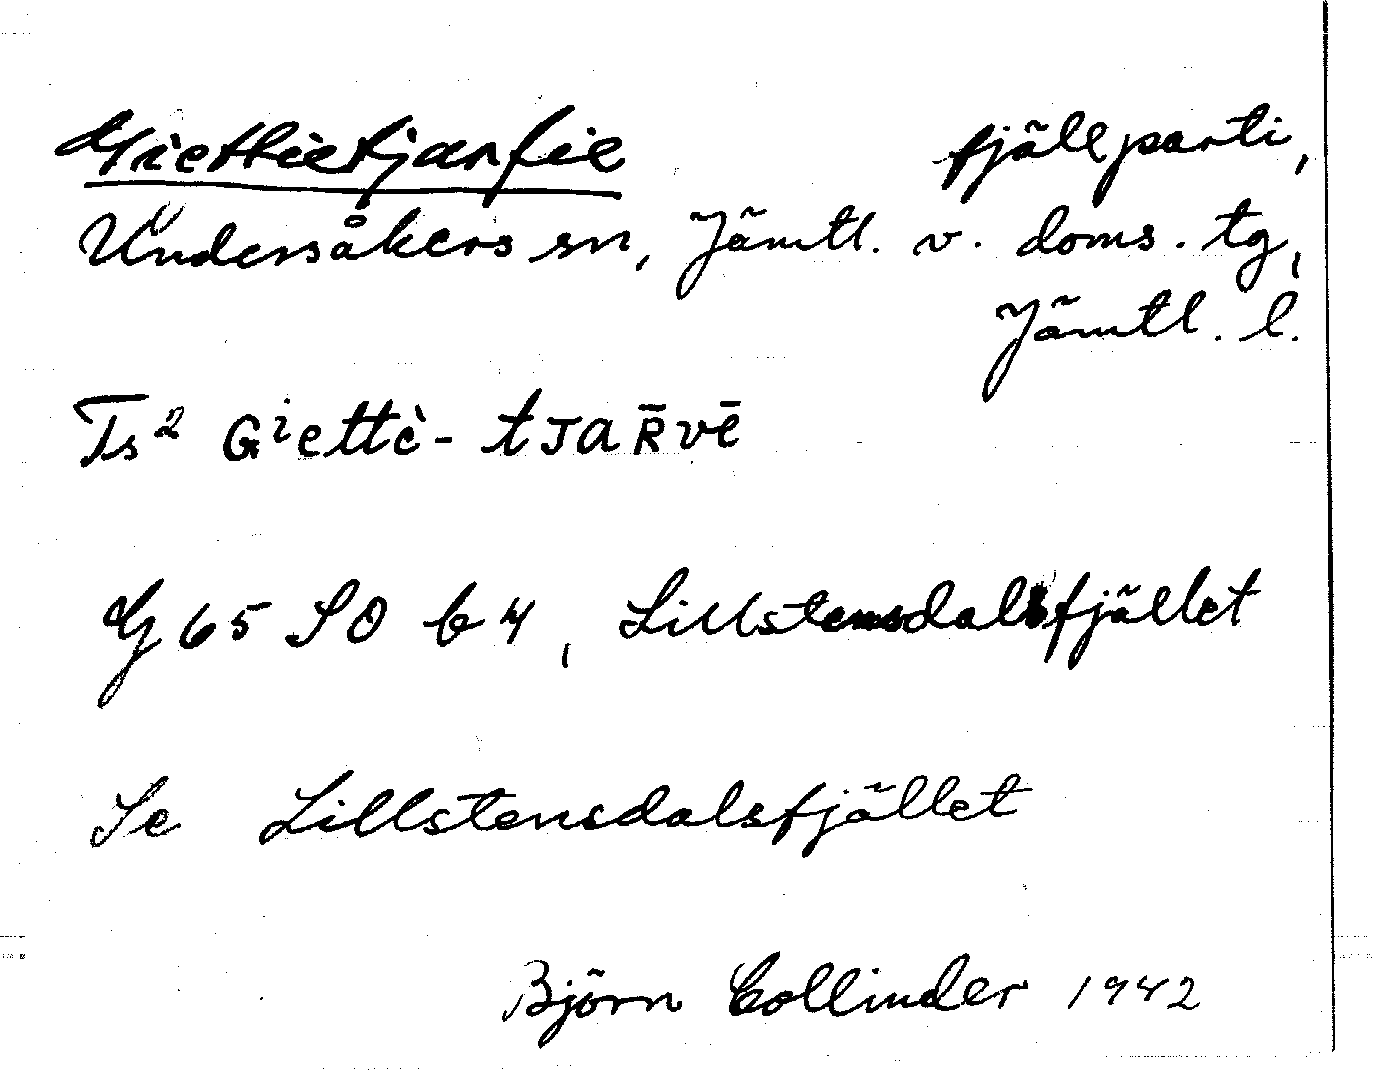 Giettietjarfie fjällparti,
Undersåkers sn, Jämtl. v. doms. tg,
Jämtl. l.
Ts² Giettè- tJaR̄vē
G 65 SO b 4, Lillstensdalsfjället
Se Lillstensdalsfjället
Björn Collinder 1942